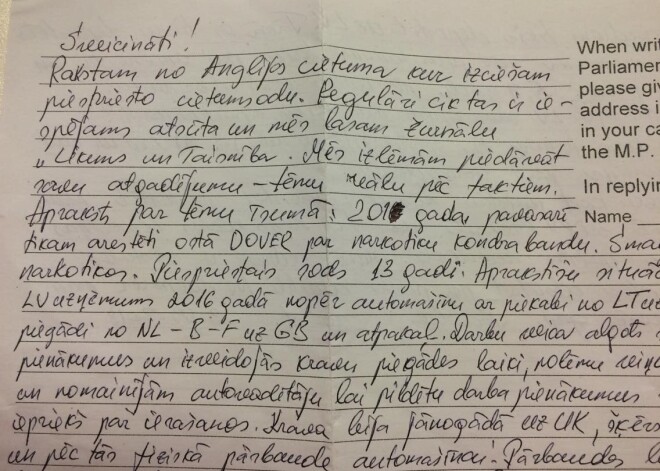 Sveicināti!
Rakstam no Anglijas cietuma kur izciešam
piespriesto cietumsodu. Regulāri cik tas ir ie-
spējams atsūta un mēs lasam žurnālu
„Likums un Taisnība. Mēs izlēmām piedāvāt
savu atgadījumu – tēmu reālu pēc faktiem.
Apraksts par tēmu īsumā: 201 gada pavasarī
tikam arestēti ostā DOVER par narkotiku kondrabandu.
narkotikas. Piespriestais sods 13 gadi. Aprakstīšu situā
LV uzņēmums 2016 gadā nopēr automašīnu ar piekabi no LT uz
piegādi no NL – B – F uz GB un atpakaļ. Darbu veica algots
pienākumus un izveidojās kravu piegādes laiki, nolēmu
un nomainījām autovadītāju lai pildītu darba pienākumus
iepriekš par ierašanos. Krava bija jānogādā uz UK, šķērs
un pēc tās fiziskā pārbaude automašīnai. Pārbaudes
When writ
Parliamen
please giv
address i
in your ca
the M.P.
In replyin
Name